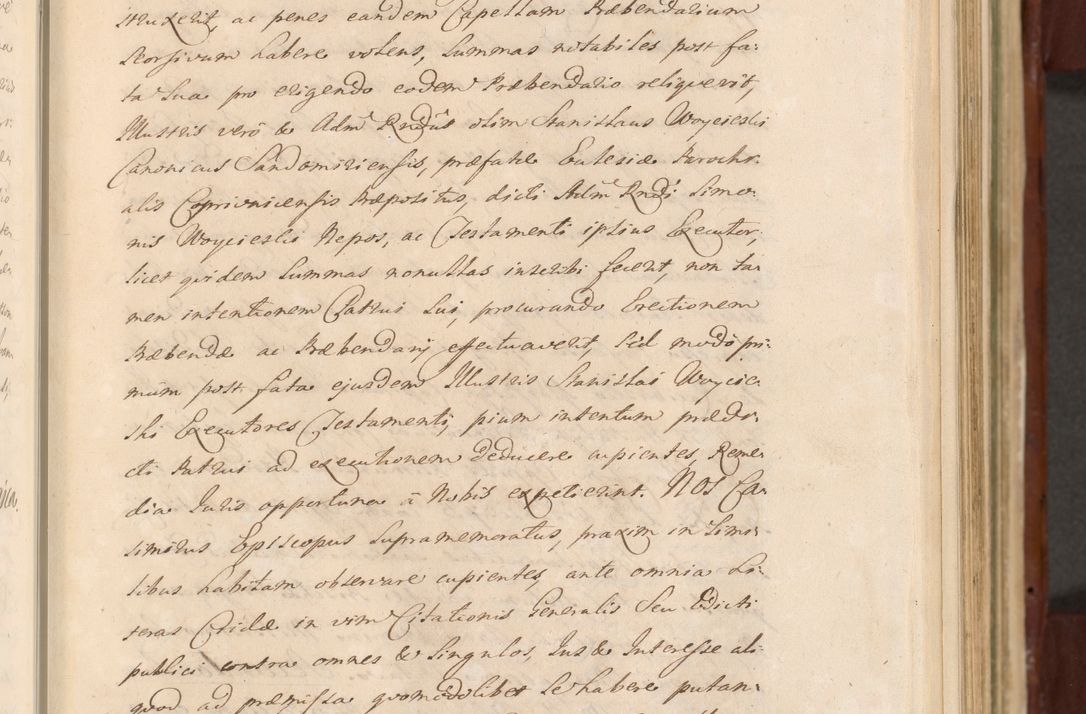 struxerit, ac penes eandem Capellam Præbendarium
seorsivum habere volens, summas notabiles post fa:
ta sua pro erigendo eodem Præbendario reliquerit,
Illustris verò & Adm Rndus olim Stanislaus Woycieski
Canonicus Sandomiriensis, præfatæ Eclesiæ Parochi:
alis Coprivnicensis Præpositus, dicti Adm Rndi Simo:
nis Woycieski Nepos, ac Testamenti ipsius Executor,
licet quidem summas nonullas inscribi fecerit, non ta:
men intentionem Patrui sui, procurando Erectionem
Præbendæ ac Præbendarij effectuaverit, sed modò pri:
mum post fata ejusdem Illustris Stanislai Woycie:
ski Executores Testamenti, pium intentum prædi:
cti Patrui ad executionem deducere cupientes, Reme:
dia Juris opportuna â Nobis expetierint. NOS Ca:
simirus Episcopus supramemoratus, praxim in simi:
libus habitam observare cupientes, ante omnia Li:
teras Cridæ in vim Citationis Generalis seu Edicti
publici contra omnes & singulos, Jus & Interesse ali:
quod ad præmissa quomodolibet se habere putan: